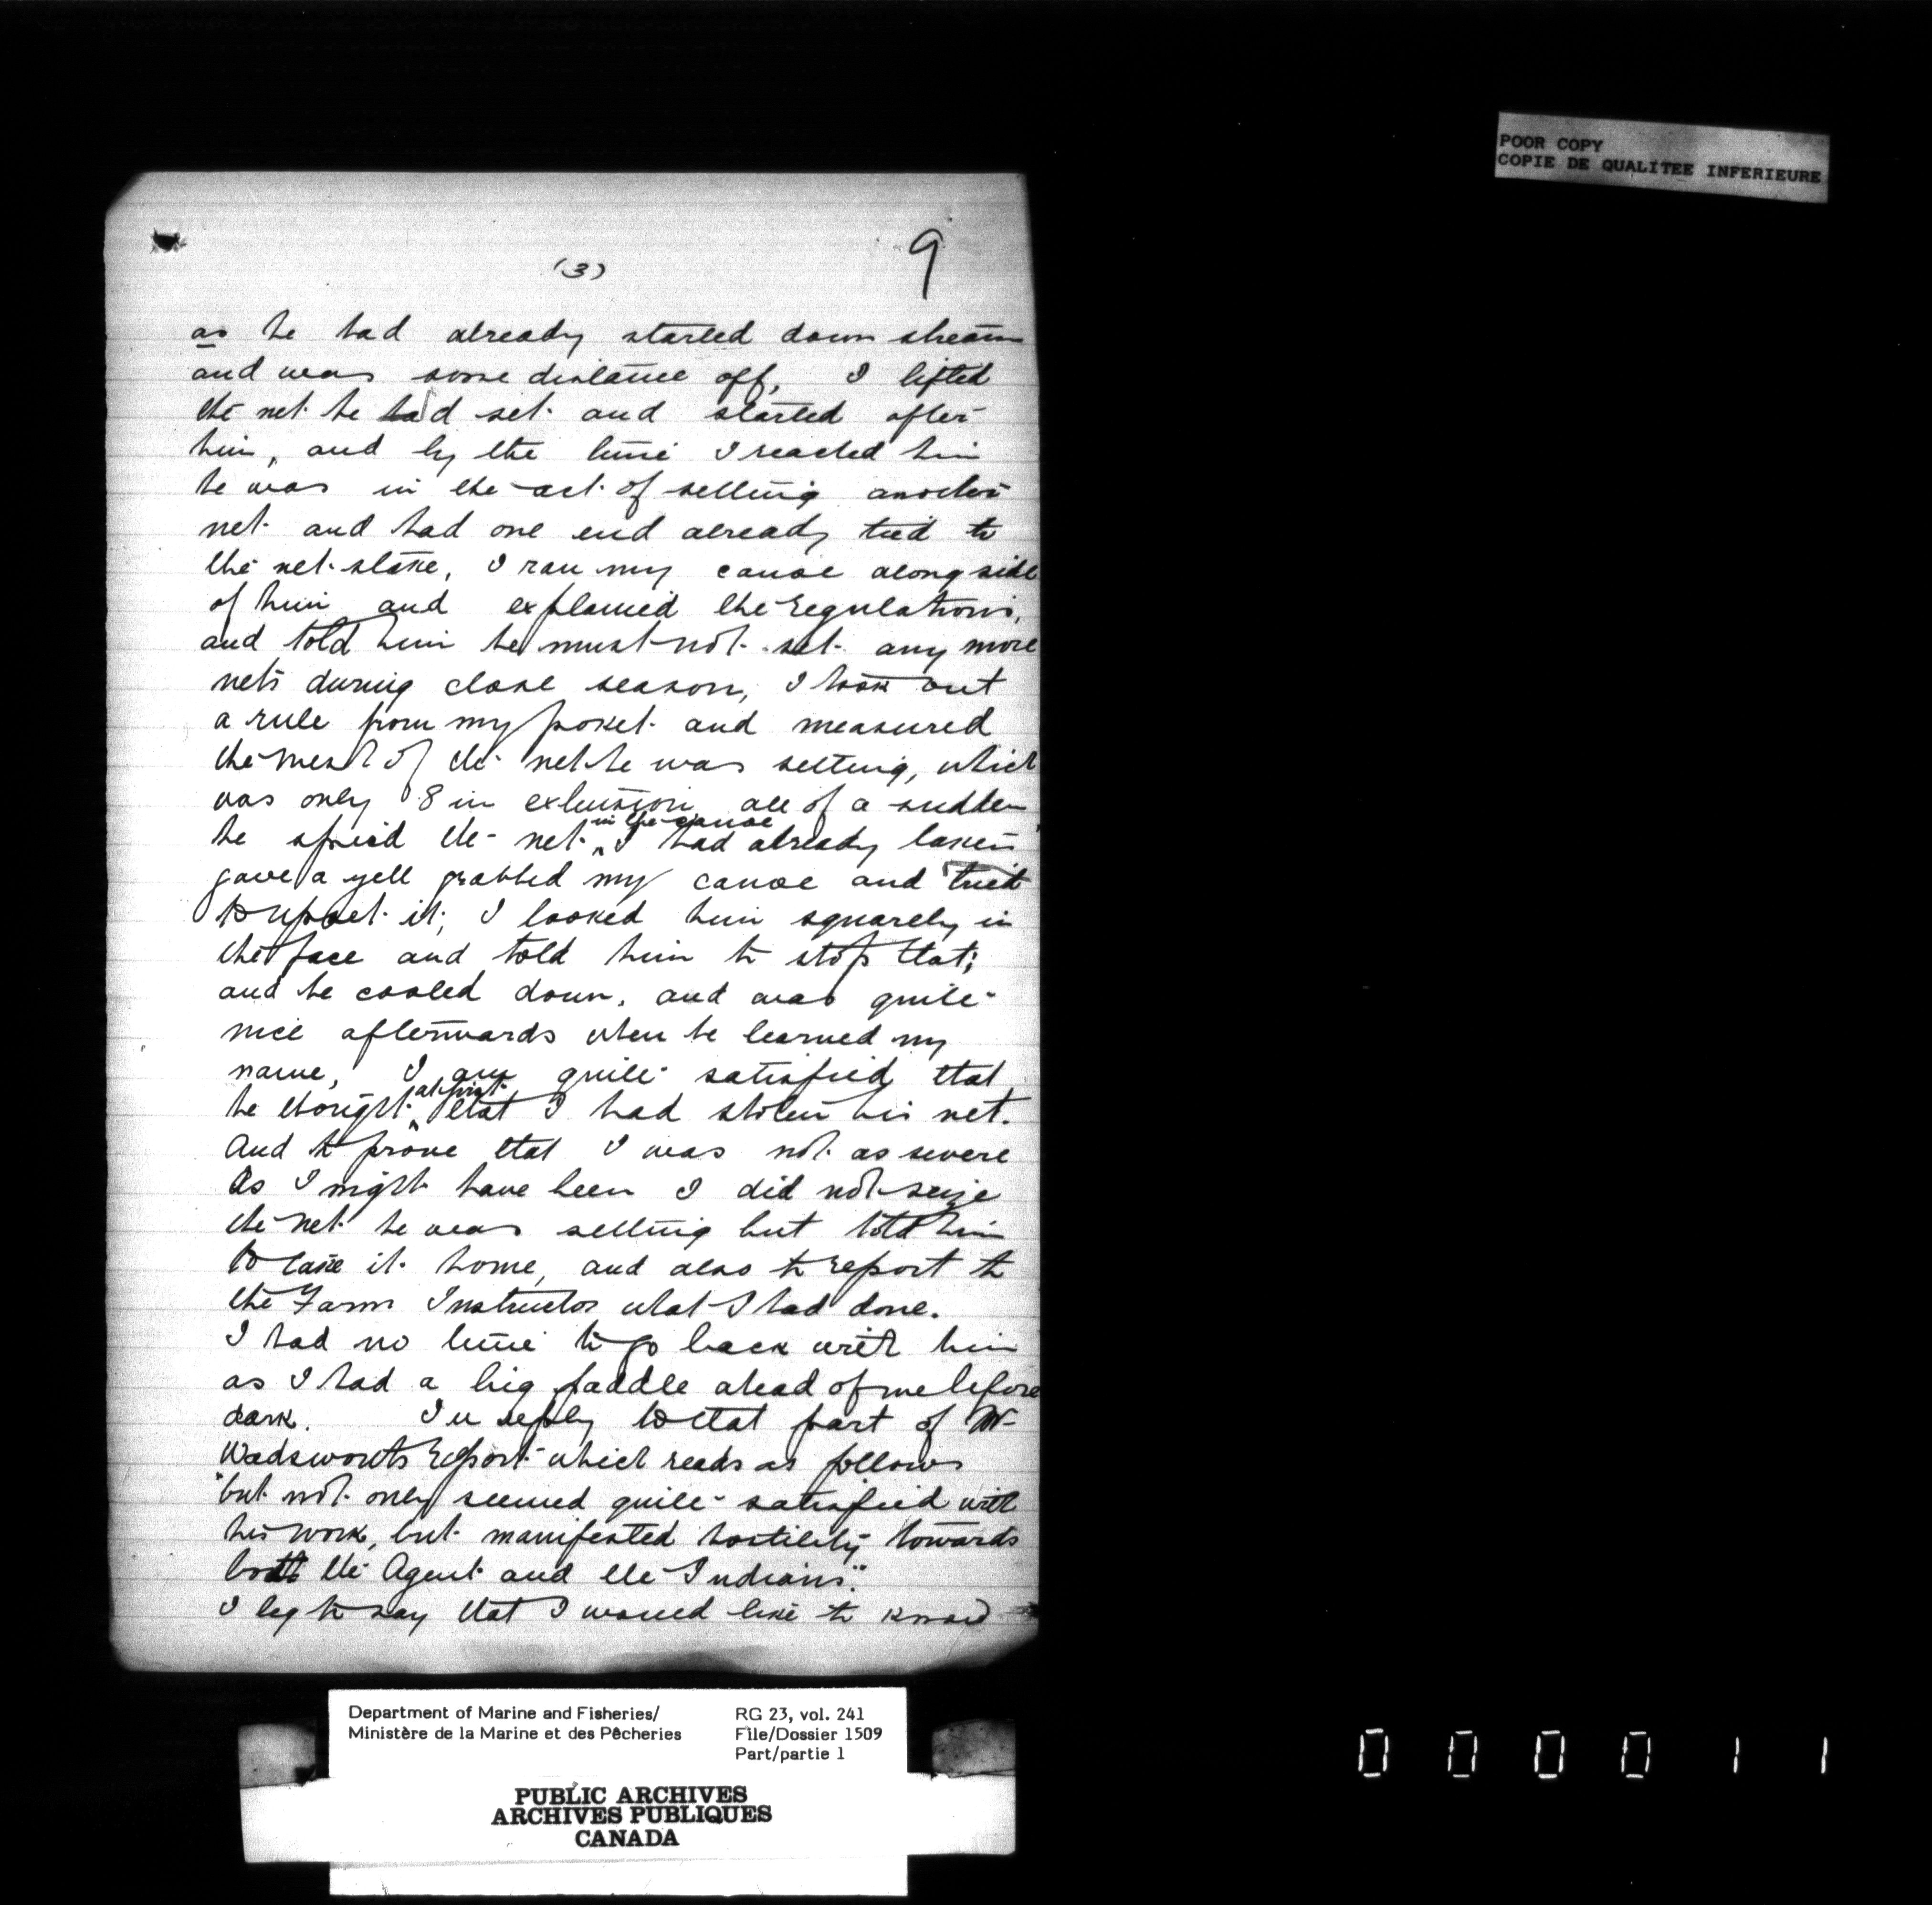 POOR COPY
COPIE DE QUALITEE INFERIEURE
9
(3)
as he had already started down stream
and was some distance off, I lifted
the net he had set and started after
him, and by the time I reached him
he was in the act of setting another
net and had one end already tied to
the net stake, I ran my canoe along side
of him and explained the regulations,
and told him he must not set any more
nets during close season, I took out
a rule from my poket and measured
the mesh of the net he was setting, which
was only 8 in extension all of a sudden
he spied the net in the canoe I had already taken
gave a yell grabbed my canoe and tried
to upset it; I looked him squarely in
the face and told him to stop that;
and he cooled down, and was quite
nice afterwards when he learned my
name, I am quite satisfied that
he thought at first that I had stolen his net.
And to prove that I was not as severe
as I might have been I did not seize
the net he was setting but told him
to take it home, and also to report to
the Farm Instructor what I had done.
I had no time to go back with him
as I had a big paddle ahead of me before
dark. In reply to that part of Mr
Wadsworth's report which reads as follows
"but not only seemed quite satisfied with
his work, but manifested hostility towards
both the Agent and the Indians."
I beg to say that I would like to know
Department of Marine and Fisheries/
Ministère de la Marine et des Pêcheries
RG 23, vol. 241
File/Dossier 1509
Part/partie 1
PUBLIC ARCHIVES
ARCHIVES PUBLIQUES
CANADA
000011